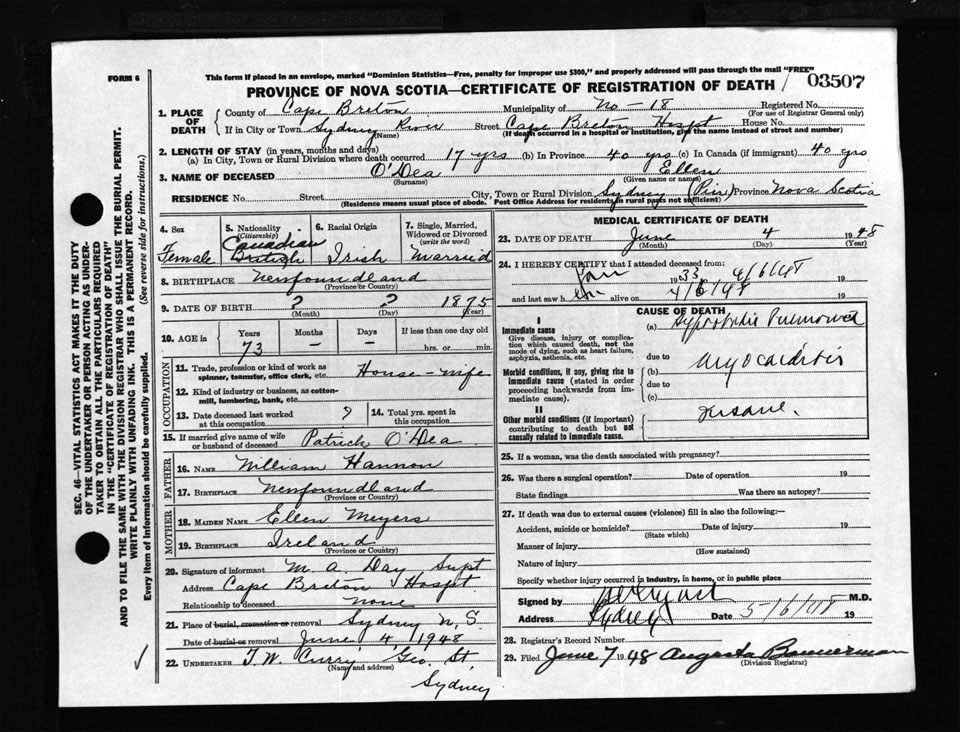 FORM 6
This form if placed in an envelope, marked "Dominion Statistics—Free, penalty for improper use $300," and properly addressed will pass through the mail "FREE"
PROVINCE OF NOVA SCOTIA—CERTIFICATE OF REGISTRATION OF DEATH / 03507
1. PLACE OF DEATH County of Cape Breton Municipality of No - 18 Registered No.
(For use of Registrar General only)
If in City or Town Sydney River Street Cape Breton Hospt House No.
(Name) (If death occurred in a hospital or institution, give the name instead of street and number)
2. LENGTH OF STAY (in years, months and days)
(a) In City, Town or Rural Division where death occurred 17 yrs (b) In Province 40 yrs (c) In Canada (if immigrant) 40 yrs
3. NAME OF DECEASED O'Dea Ellen
(Surname) (Given name or names)
RESIDENCE No. Street City, Town or Rural Division Sydney (Pier) Province Nova Scotia
(Residence means usual place of abode. Post Office Address for residents in rural parts not sufficient)
4. Sex Female
5. Nationality (Citizenship) Canadian British
6. Racial Origin Irish
7. Single, Married, Widowed or Divorced (write the word) Married
8. BIRTHPLACE Newfoundland
(Province or Country)
9. DATE OF BIRTH ? ? 1875
(Month) (Day) (Year)
10. AGE in Years Months Days If less than one day old
73 — — hrs. or min.
OCCUPATION
11. Trade, profession or kind of work as spinner, teamster, office clerk, etc. House-wife
12. Kind of industry or business, as cotton-mill, lumbering, bank, etc.
13. Date deceased last worked at this occupation ? 14. Total yrs. spent in this occupation
15. If married give name of wife or husband of deceased Patrick O'Dea
FATHER
16. NAME William Hannon
17. BIRTHPLACE Newfoundland
(Province or Country)
MOTHER
18. MAIDEN NAME Ellen Meyers
19. BIRTHPLACE Ireland
(Province or Country)
20. Signature of informant M. A. Day, Supt
Address Cape Breton Hospt.
Relationship to deceased none
21. Place of burial, cremation or removal Sydney N. S.
Date of burial or removal June 4, 1948
22. UNDERTAKER T. W. Curry, Geo. St,
(Name and address)
Sydney
MEDICAL CERTIFICATE OF DEATH
23. DATE OF DEATH June 4 1948
(Month) (Day) (Year)
24. I HEREBY CERTIFY that I attended deceased from
Jan 1933 4/6/48 19
and last saw h er alive on 4/6/48 19
CAUSE OF DEATH
I
Immediate cause
Give disease, injury or complication which caused death, not the mode of dying, such as heart failure, asphyxia, asthenia, etc.
(a) Hypostatic Pneumonia
due to
Morbid conditions, if any, giving rise to immediate cause (stated in order proceeding backwards from immediate cause).
(b) Myocarditis
due to
(c)
II
Other morbid conditions (if important) contributing to death but not causally related to immediate cause.
Insane.
25. If a woman, was the death associated with pregnancy?
26. Was there a surgical operation? Date of operation 19
State findings Was there an autopsy?
27. If death was due to external causes (violence) fill in also the following:—
Accident, suicide or homicide? Date of injury 19
(State which)
Manner of injury
(How sustained)
Nature of injury
Specify whether injury occurred in industry, in home, or in public place
Signed by M.D.
Address Sydney Date 5/6/48 19
28. Registrar's Record Number
29. Filed June 7 1948 Augusta Bannerman
(Division Registrar)
SEC. 46—VITAL STATISTICS ACT MAKES IT THE DUTY
OF THE UNDERTAKER OR PERSON ACTING AS UNDER-
TAKER TO OBTAIN ALL THE PARTICULARS REQUIRED
IN THE "CERTIFICATE OF REGISTRATION OF DEATH"
AND TO FILE THE SAME WITH THE DIVISION REGISTRAR WHO SHALL ISSUE THE BURIAL PERMIT.
WRITE PLAINLY WITH UNFADING INK. THIS IS A PERMANENT RECORD.
Every item of information should be carefully supplied. (See reverse side for instructions.)